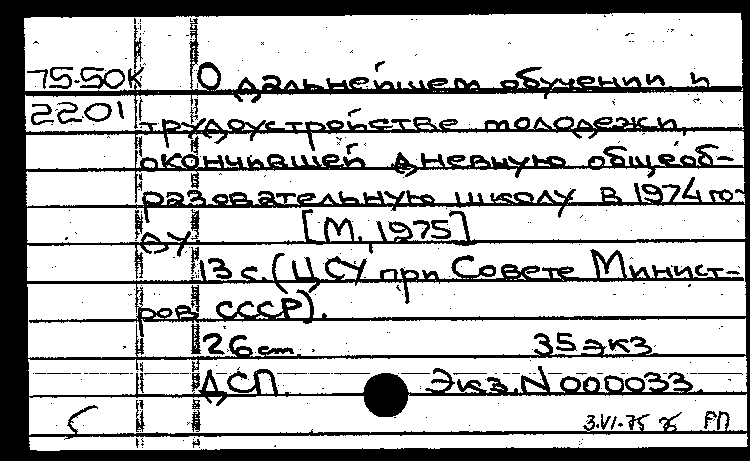 75-50К О дальнейшем обучении и
2201 трудоустройстве молодежи,
окончившей дневную общеоб-
разовательную школу в 1974 го-
ду [М., 1975]
13 с. (ЦСУ при Совете Минист-
ров СССР).
26 см. 35 экз
ДСП. Экз. N 000033.
3.VI-75 РП